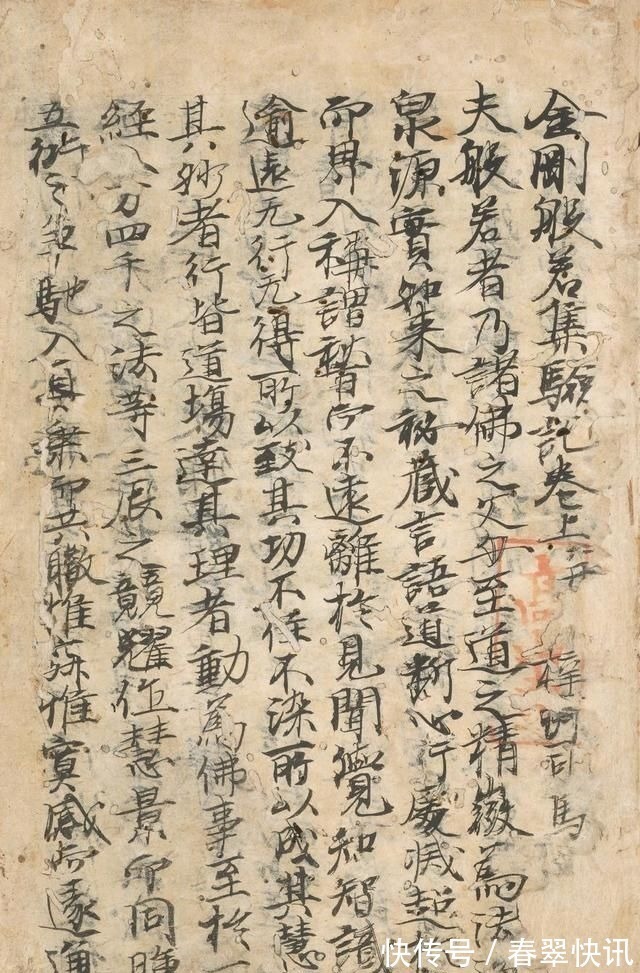 金剛般若集驗記卷上并 梓州司馬
夫般若者乃諸佛之父母至道之精微為法
泉源實如来之祕蔵言語道斷心行處滅超
而界入稱謂不遠離於見聞覺知智諸
逾遠无行无得所以致其功不住不染所以成其慧
其妙者行皆道場達其理者動為佛事至於一
經八万四千之法等三辰之競耀住慧景而同
五之馳入真而共轍惟寞感而遂通
快传号/春翠快讯